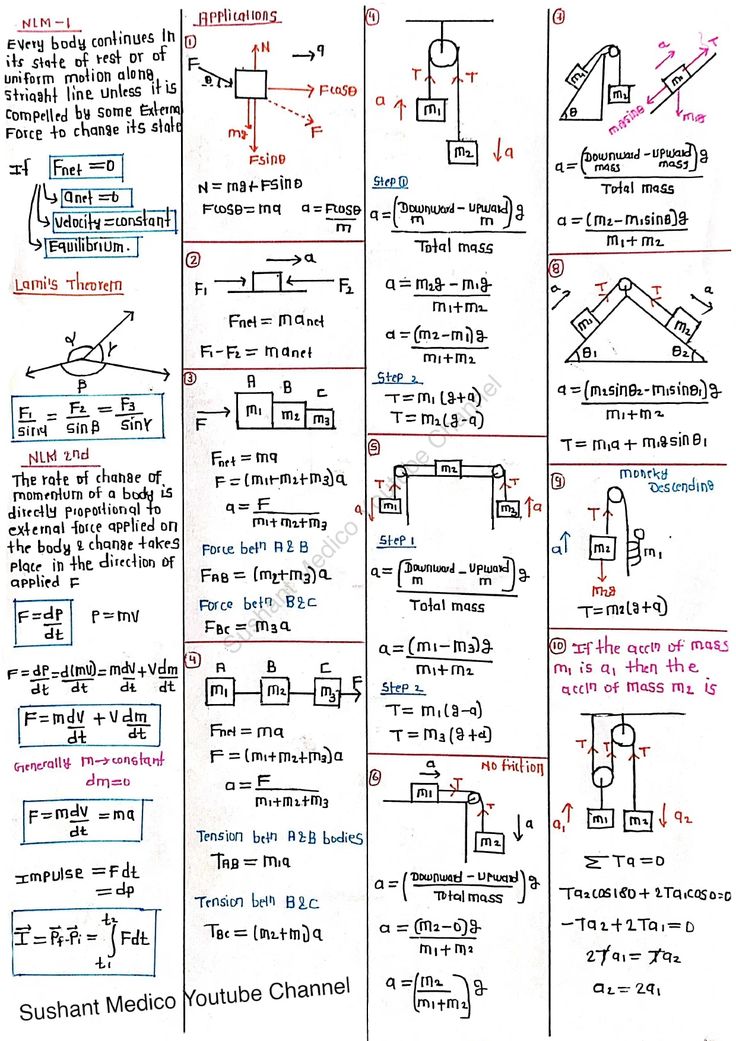 NLM-1
Every body continues in
its state of rest or of
uniform motion along
straight line unless it is
compelled by some External
Force to change its state
If Fnet = 0
anet = 0
Velocity = constant
Equilibrium.
Lami's Theorem
α
γ
β
F1/sinα = F2/sinβ = F3/sinγ
NLM 2nd
The rate of change of
momentum of a body is
directly proportional to
external force applied on
the body & change takes
place in the direction of
applied F
F = dP/dt P = mv
F = dP/dt = d(mv)/dt = mdv/dt + Vdm/dt
F = mdV/dt + Vdm/dt
Generally m → constant
dm = 0
F = mdV/dt = ma
Impulse = Fdt
= dp
I = Pf - Pi = ∫ t1 t2 Fdt
Applications
①
N
a
F
θ
Fcosθ
F
mg
Fsinθ
N = mg + Fsinθ
Fcosθ = ma a = Fcosθ/m
②
a
F1 F2
Fnet = manet
F1 - F2 = manet
③
A B C
F m1 m2 m3
Fnet = ma
F = (m1+m2+m3)a
a = F/m1+m2+m3
Force betn A & B
FAB = (m2+m3)a
Force betn B&C
FBC = m3a
④
A B C F
m1 m2 m3
Fnet = ma
F = (m1+m2+m3)a
a = F/m1+m2+m3
Tension betn A&B bodies
TAB = m1a
Tension betn B&C
TBC = (m2+m1)a
④
T T
a m1
m2 a
Step ①
a = (Downward m - Upward m)g/Total mass
a = m2g - m1g/m1+m2
a = (m2-m1)g/m1+m2
Step 2
T = m1(g+a)
T = m2(g-a)
⑤
m2
T T
a m1 m3 a
Step 1
a = (Downward m - Upward m)g/Total mass
a = (m1-m3)g/m1+m2
Step 2
T = m1(g-a)
T = m3(g+a)
⑥
No friction
a
m1 T
T
m2 a
a = (Downward - Upward/Total mass)g
a = (m2-0)g/m1+m2
a = (m2/m1+m2)g
⑦
a T
m1 m2 m1
θ
mgsinθ
m1g
a = (Downward mass - Upward mass)g/Total mass
a = (m2-m1sinθ)g/m1+m2
⑧
a T T a
m1 m2
θ1 θ2
a = (m2sinθ2-m1sinθ1)g/m1+m2
T = m1a + m1gsinθ1
⑨
moncky
Descending
T
a m2 m1
m2g
T = m2(g+a)
⑩ If the accln of mass
m1 is a1 then the
accln of mass m2 is
T T T
a1 m1 m2 a2
Σ Ta = 0
Ta2cos180 + 2Ta1cos0=0
-Ta2 + 2Ta1 = 0
2Ta1 = Ta2
a2 = 2a1
Sushant Medico Youtube Channel
Sushant Medico Youtube Channel